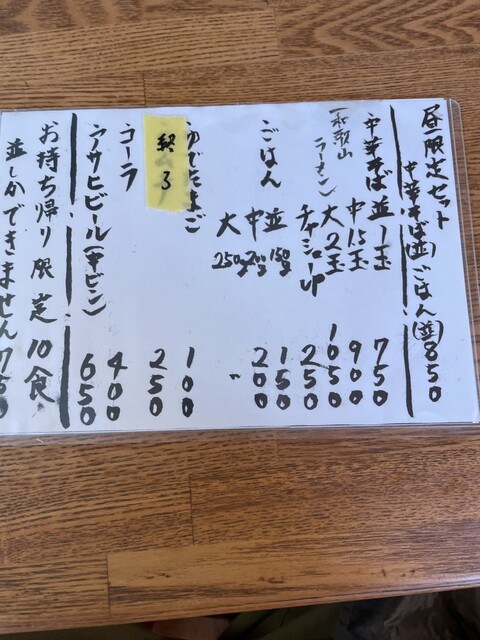 昼限定セット
中華そば(並)ごはん(並)850
中華そば 並 1玉 750
(和歌山ラーメン) 中 1.5玉 900
大 2玉 1050
チャシューup 250
ごはん 並 150g 150
中 200
大 250g 〃
ゆでたまご 100
終る 250
コーラ 400
アサヒビール(中ビン) 650
お持ち帰り限定10食
並しかできません750